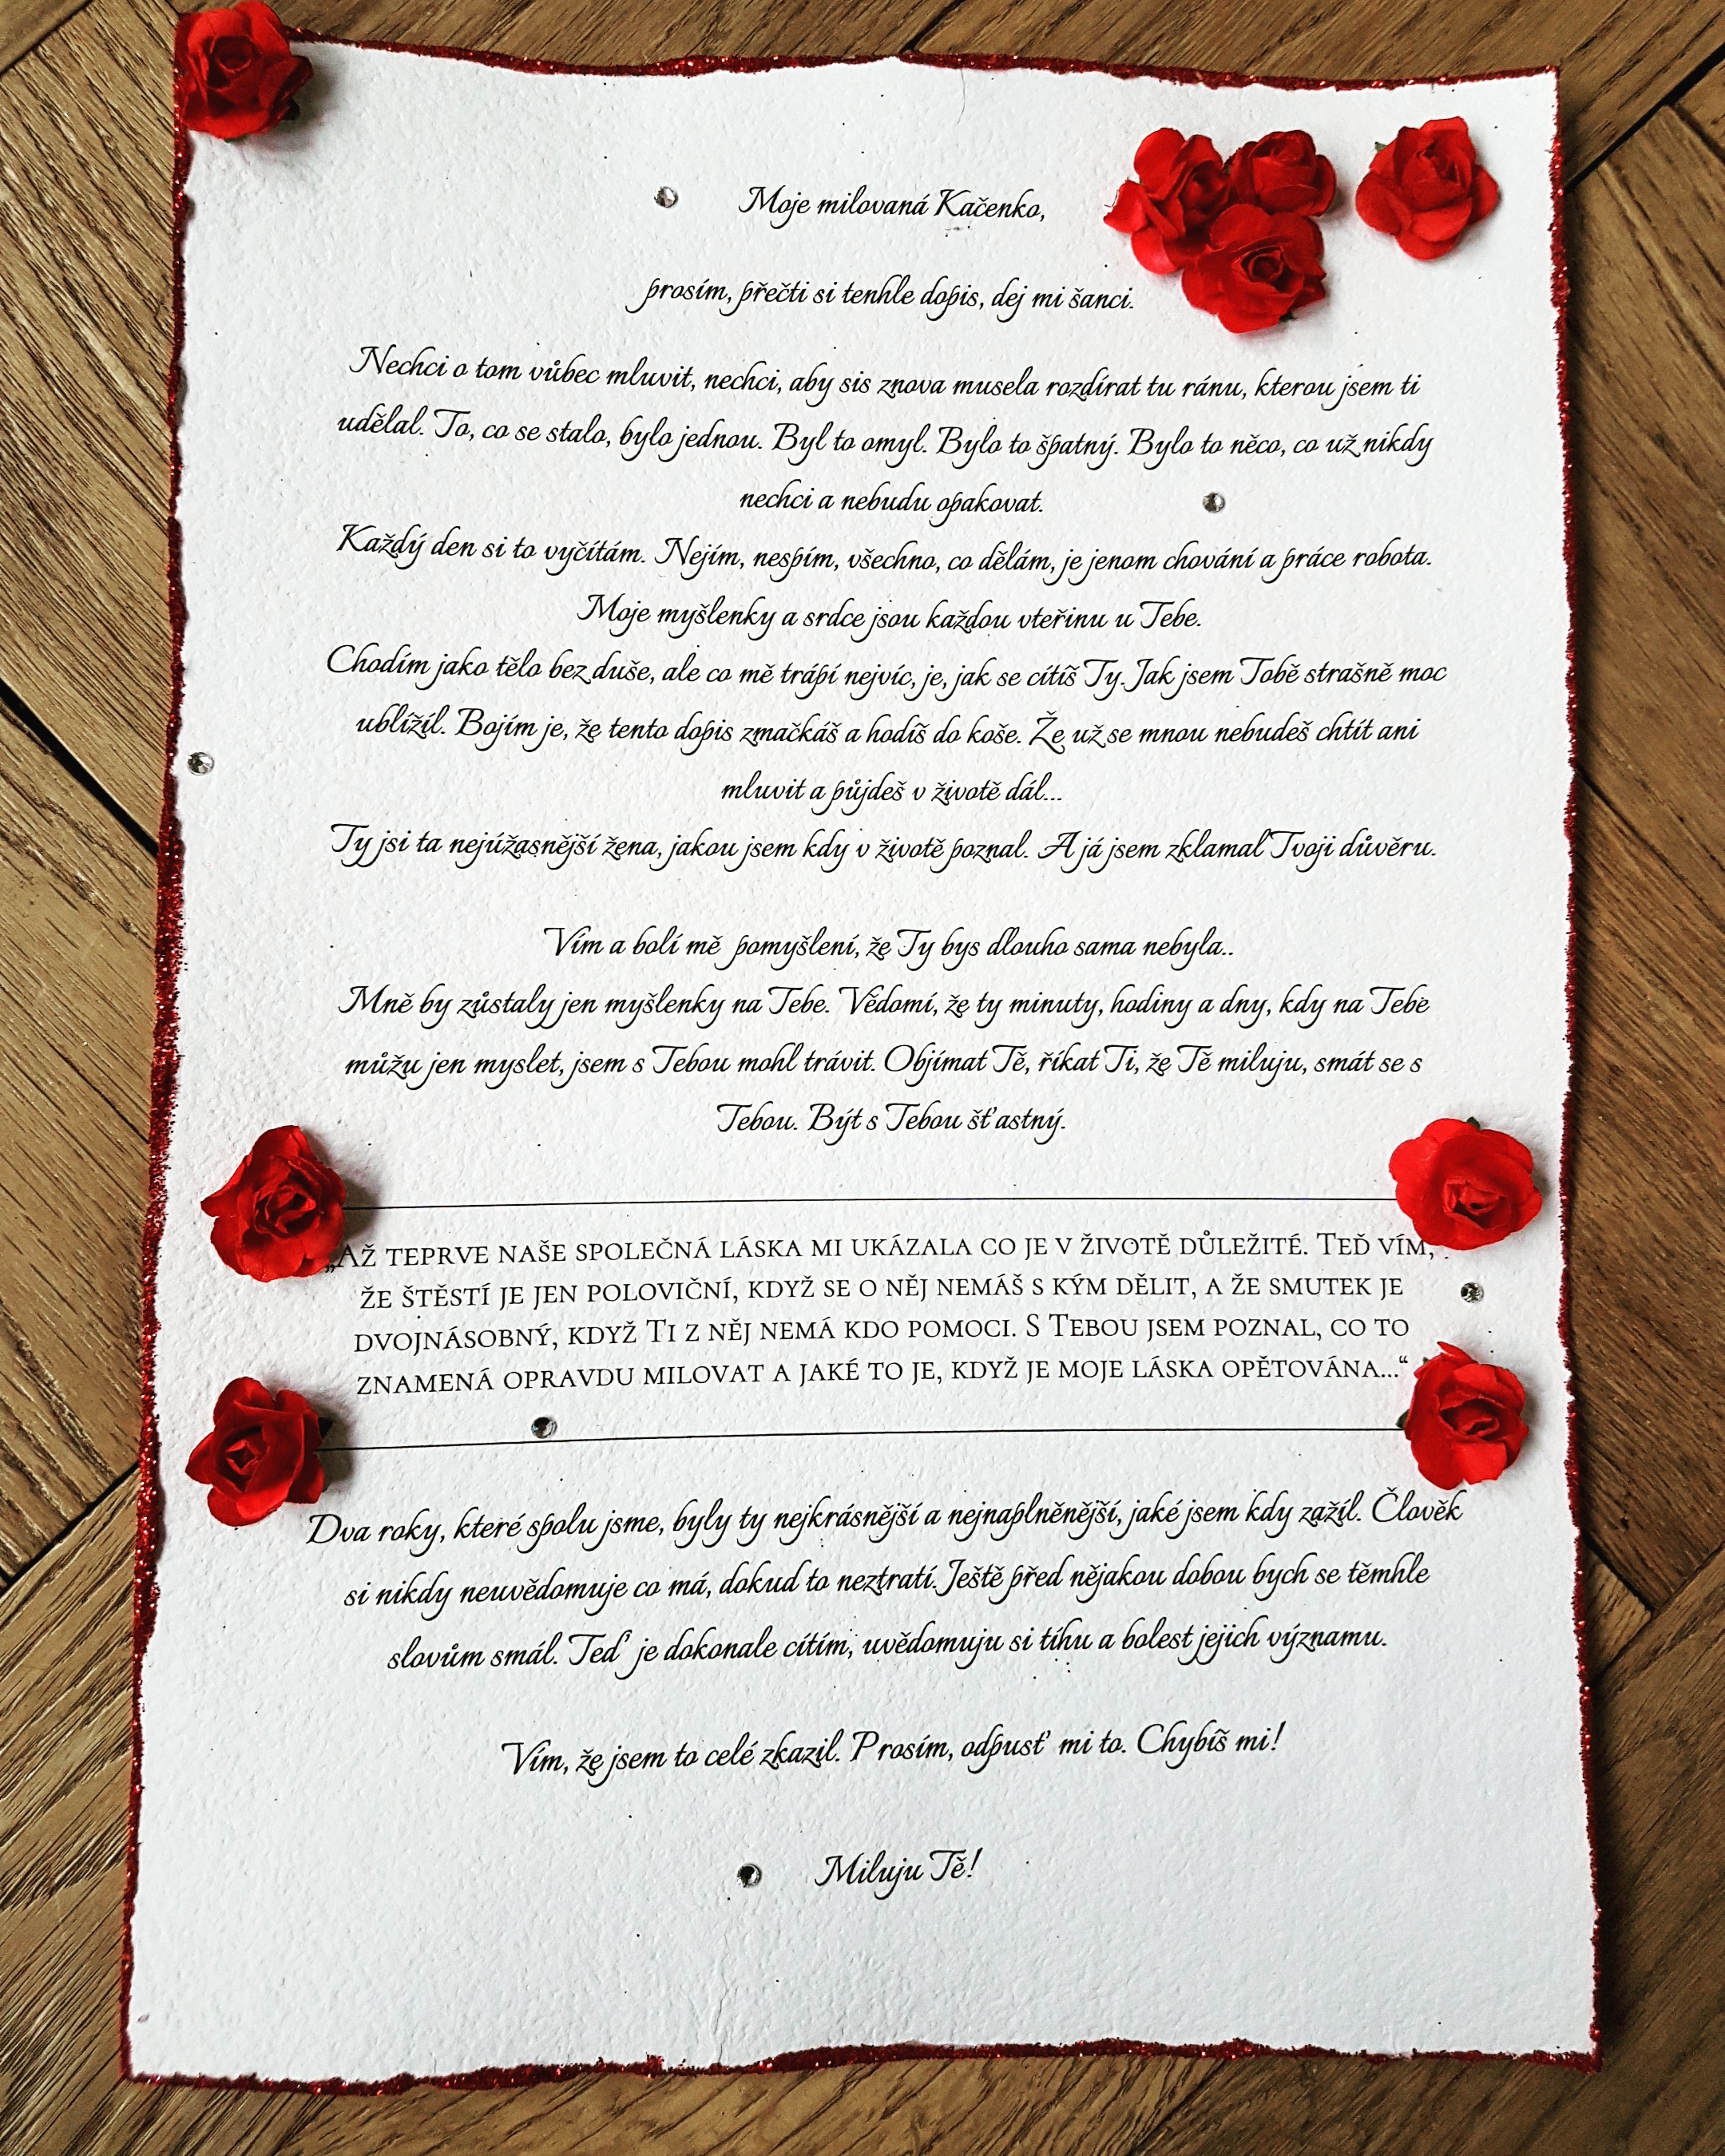 Moje milovaná Kačenko,
prosím, přečti si tenhle dopis, dej mi šanci.
Nechci o tom vůbec mluvit, nechci, aby sis znova musela rozdírat tu ránu, kterou jsem ti
udělal. To, co se stalo, bylo jednou. Byl to omyl. Bylo to špatný. Bylo to něco, co už nikdy
nechci a nebudu opakovat.
Každý den si to vyčítám. Nejím, nespím, všechno, co dělám, je jenom chování a práce robota.
Moje myšlenky a srdce jsou každou vteřinu u Tebe.
Chodím jako tělo bez duše, ale co mě trápí nejvíc, je, jak se cítíš Ty. Jak jsem Tobě strašně moc
ublížil. Bojím je, že tento dopis zmačkáš a hodíš do koše. Že už se mnou nebudeš chtít ani
mluvit a půjdeš v životě dál...
Ty jsi ta nejúžasnější žena, jakou jsem kdy v životě poznal. A já jsem zklamal Tvoji důvěru.
Vím a bolí mě pomyšlení, že Ty bys dlouho sama nebyla..
Mně by zůstaly jen myšlenky na Tebe. Vědomí, že ty minuty, hodiny a dny, kdy na Tebe
můžu jen myslet, jsem s Tebou mohl trávit. Objímat Tě, říkat Ti, že Tě miluju, smát se s
Tebou. Být s Tebou šťastný.
„Až teprve naše společná láska mi ukázala co je v životě důležité. Teď vím,
že štěstí je jen poloviční, když se o něj nemáš s kým dělit, a že smutek je
dvojnásobný, když Ti z něj nemá kdo pomoci. S Tebou jsem poznal, co to
znamená opravdu milovat a jaké to je, když je moje láska opětována...“
Dva roky, které spolu jsme, byly ty nejkrásnější a nejnaplněnější, jaké jsem kdy zažil. Člověk
si nikdy neuvědomuje co má, dokud to neztratí. Ještě před nějakou dobou bych se těmhle
slovům smál. Teď je dokonale cítím, uvědomuju si tíhu a bolest jejich významu.
Vím, že jsem to celé zkazil. Prosím, odpusť mi to. Chybíš mi!
Miluju Tě!